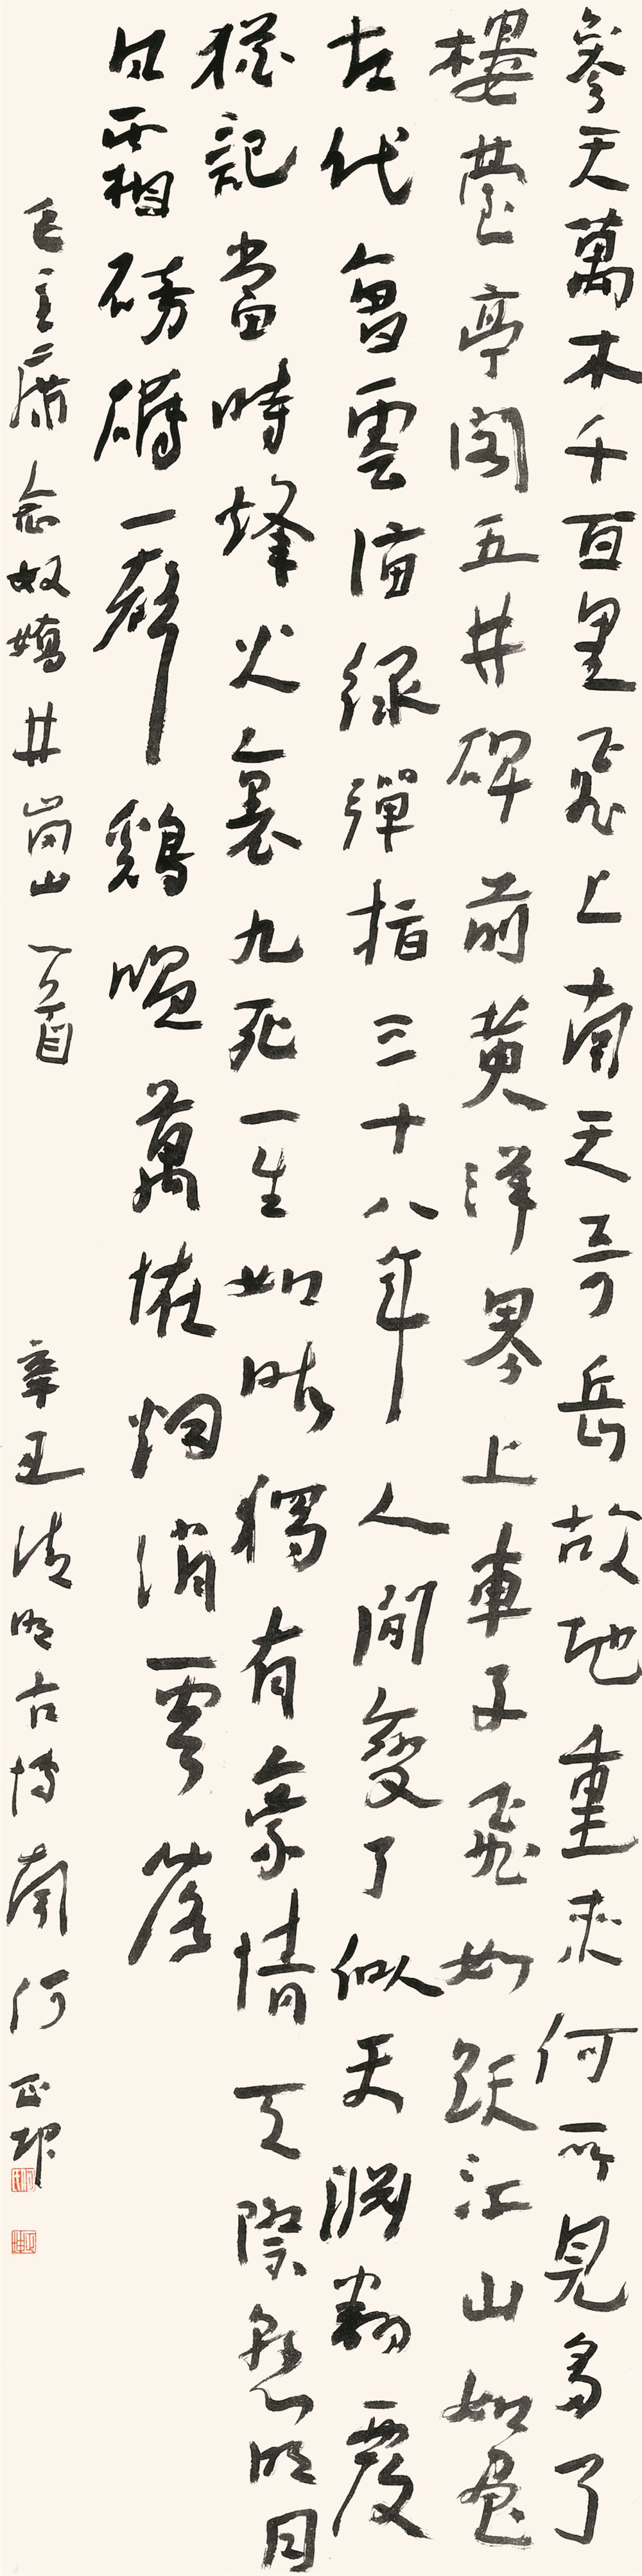 參天萬木千百里飛上南天奇岳故地重來何所見多了
樓臺亭閣五井碑前黃洋界上車子飛如跃江山如畫
古代曾雲海綠彈指三十八年人間變了似天淵翻覆
猶記當時烽火裏九死一生如昨獨有豪情天際懸明月
風霜磅礴一聲鷄唱萬怪烟消雲落
毛主席念奴嬌井崗山一首 辛丑清明古博南何正坤